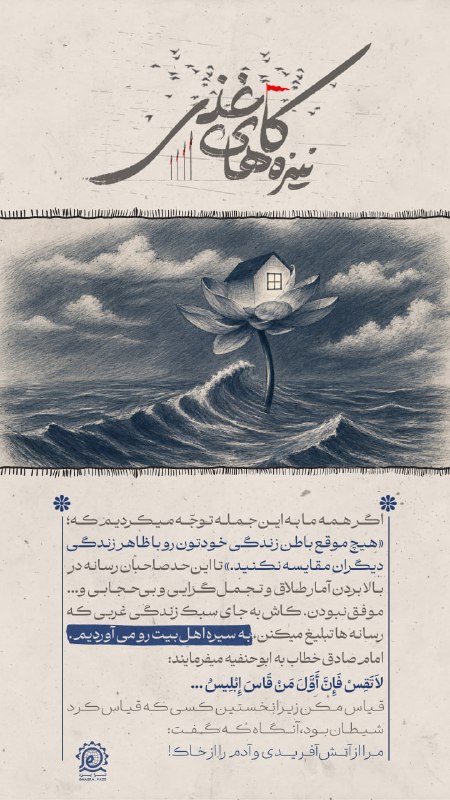 نیزه‌های کاغذی
اگر همه ما به این جمله توجّه میکردیم که؛
«هیچ موقع باطن زندگی خودتون رو با ظاهر زندگی
دیگران مقایسه نکنید.» تا این حد صاحبان رسانه در
بالا بردن آمار طلاق و تجمل گرایی و بی حجابی و...
موفق نبودن. کاش به جای سبک زندگی غربی که
رسانه ها تبلیغ میکنن، به سیره اهل بیت رو می آوردیم.
امام صادق خطاب به ابوحنفیه میفرمایند:
لَا تَقِسْ فَإِنَّ أَوَّلَ مَنْ قَاسَ إِبْلِيسُ ...
قیاس مکن زیرا نخستین کسی که قیاس کرد
شیطان بود، آنگاه که گفت:
مرا از آتش آفریدی و آدم را از خاک!